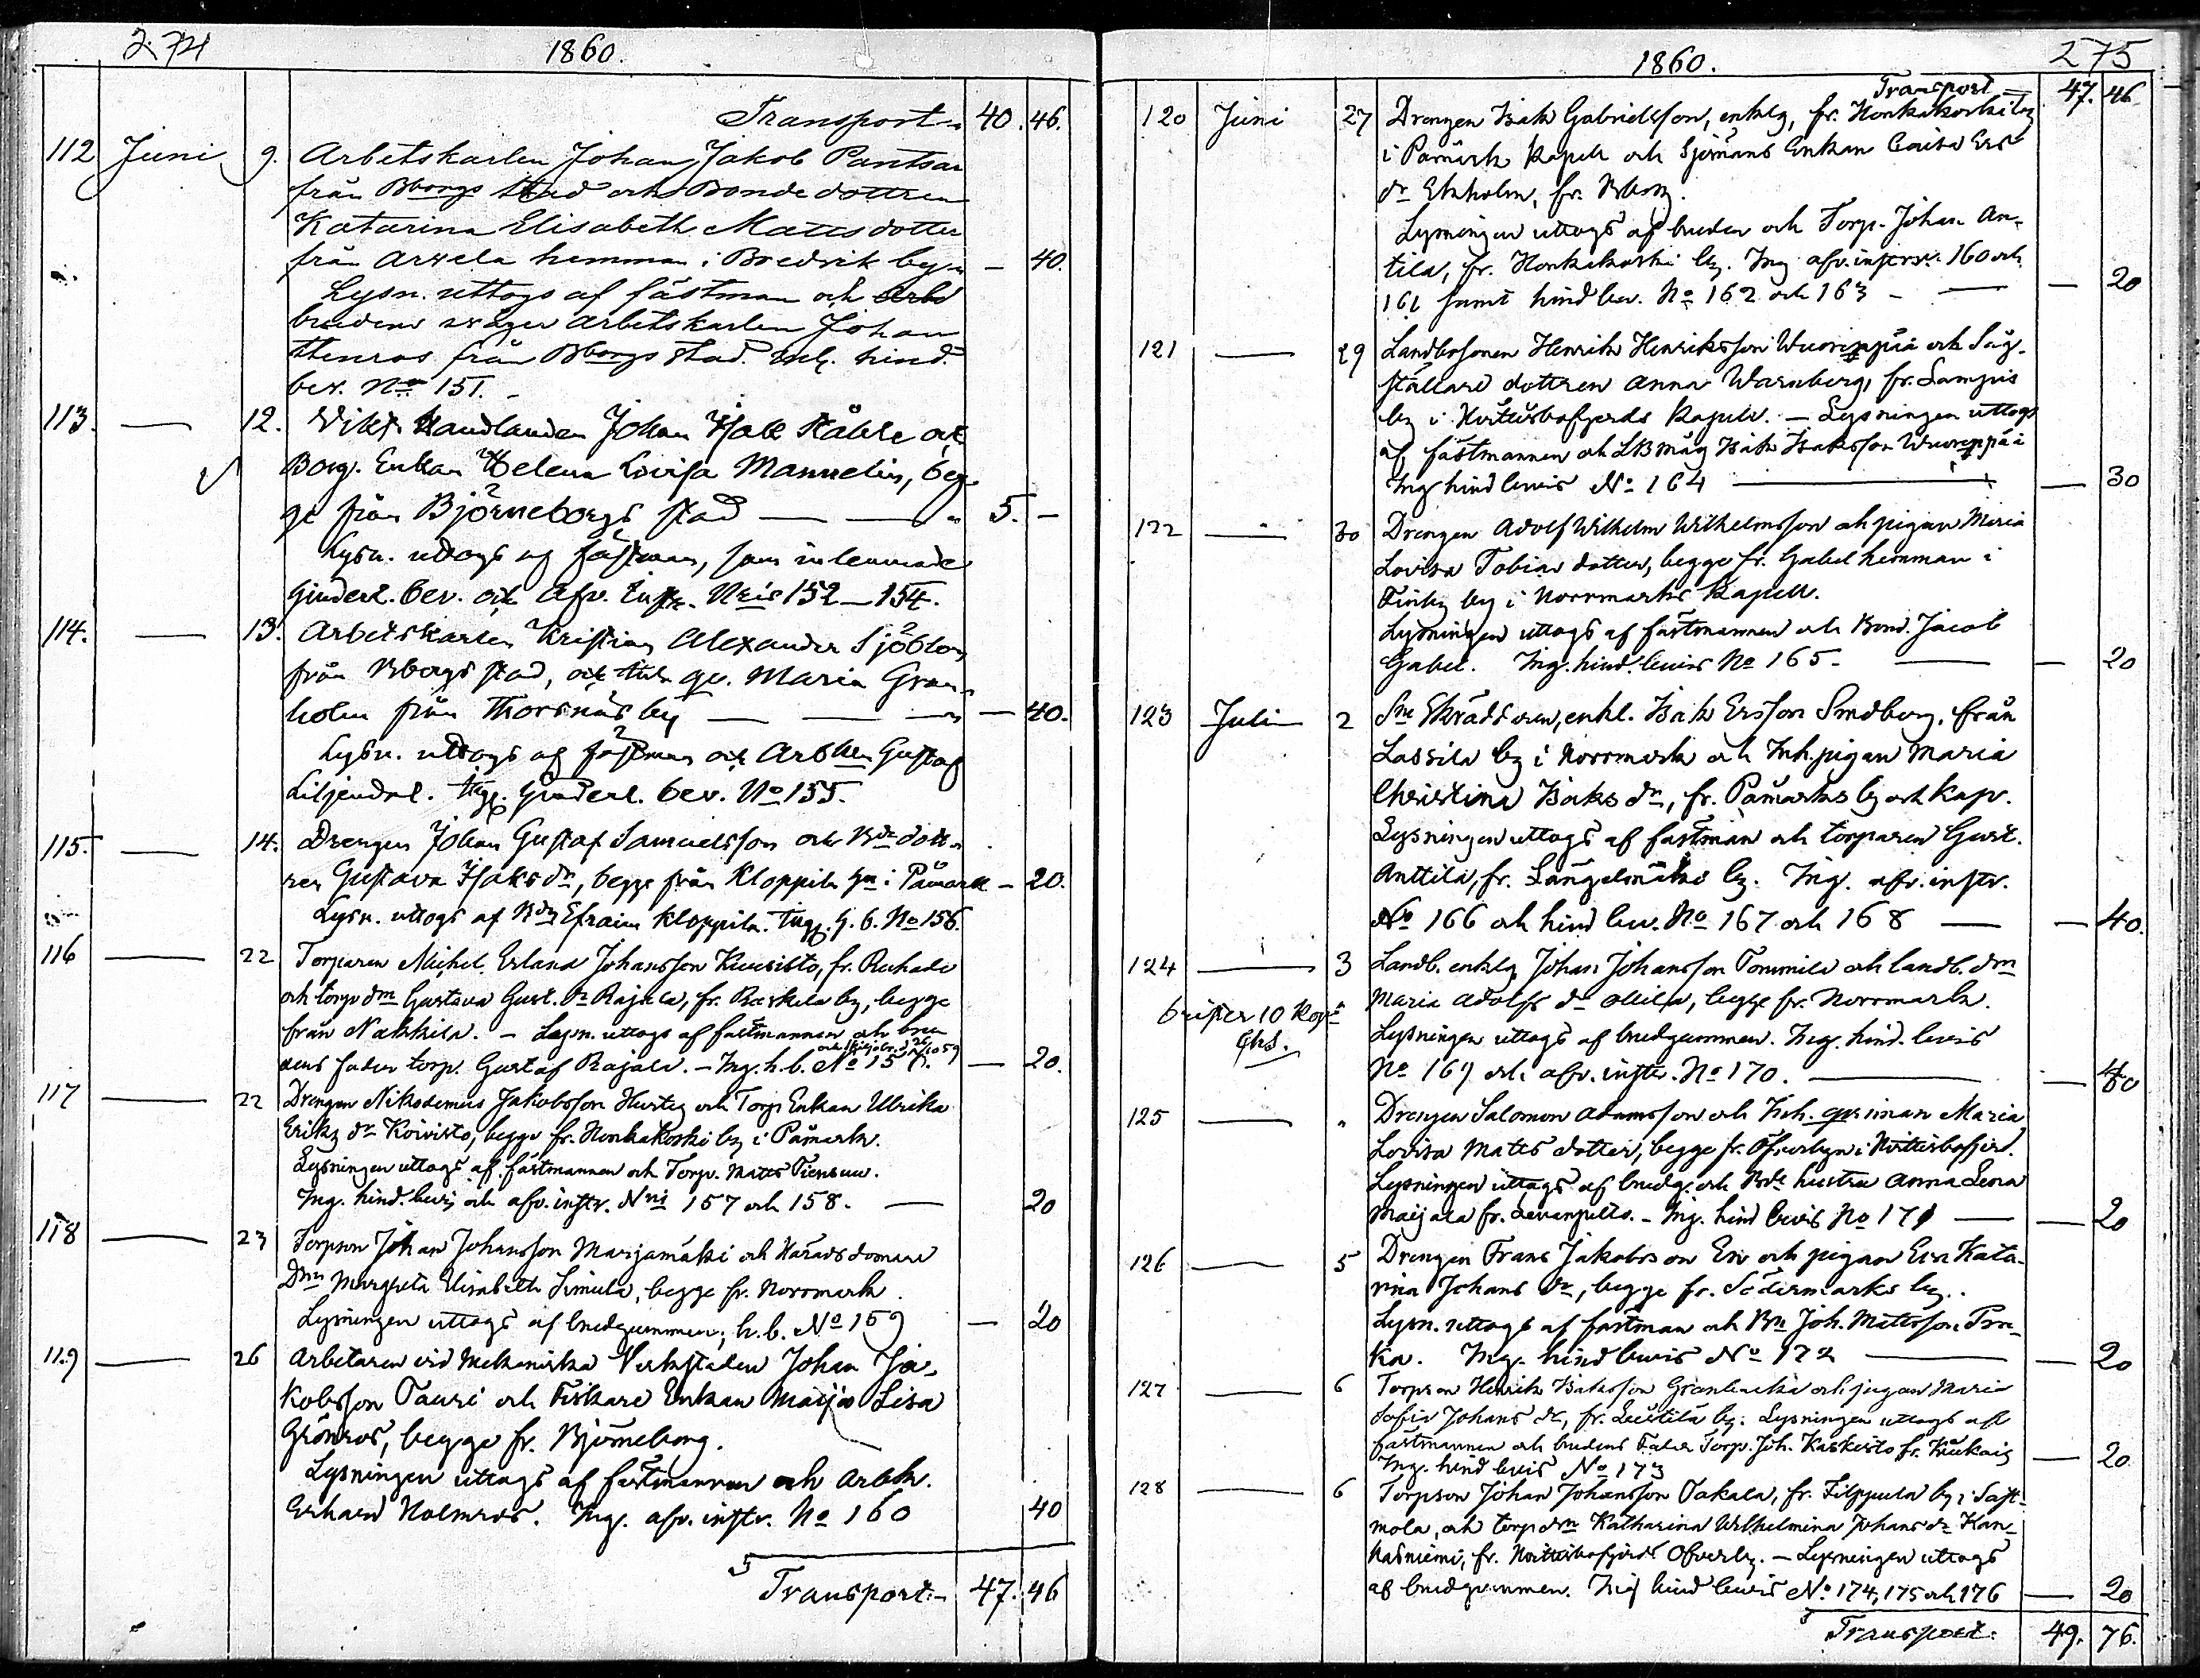 274 1860.
Transport 40. 46.
112 Juni 9. Arbetskarlen Johan Jakob Pantsar
från Bborgs stad och Bondedottren
Katarina Elisabeth Mattsdotter
från Arvela hemman i Bredvik by — 40.
Lysn. uttogs af fästman och
brudens svåger arbetskarlen Johan
Stenros från Bborgs stad. hind.
bev. No 151.
113. — 12. Handlanden Johan Isak Ståhle och
Borg. Enkan Helena Lovisa Mannelin, beg-
ge från Björneborgs stad — — 5. —
Lysn. uttogs af fästman, som inlemnade
hinderl. bev. och Afv. Instr. Nris 152—154.
114. — 13. Arbetskarlen Kristian Alexander Sjöblom
från Bborgs stad, och qv. Maria Gran-
holm från Thorsnäs by — — — 40.
Lysn. uttogs af fästman och Arbkarlen Gustaf
Liljendal. Ingg. hinderl. bev. No 155.
115. — 14. Drengen Johan Gustaf Samuelsson och Bde dott-
ren Gustava Isaks dr, begge från Kloppila hn i Påmark — 20.
Lysn. uttogs af Bdn Efraim Kloppila. Ingg. h. b. No 156.
116 — 22 Torparen Michel Erland Johansson Kuusisto, fr. Ruhade
och torp dm Gustava Gust. dr Rajala, fr. Raskela by, begge
från Nakkila. — Lysn. uttogs af fästmannen och bru
dens fader torp. Gustaf Rajala. — Ing. h. b. No 157. — 20.
117 — 22 Drengen Nikodemus Jakobsson Hurtig och Torp Enkan Ulrika
Eriks dr Koivisto, begge fr. Honkakoski by i Påmark.
Lysningen uttogs af fästmannen och Torp. Matts Tiensuu.
Ing. hind. bevis och afv. instr. Nris 157 och 158. — 20
118 — 23 Torpson Johan Johansson Marjamäki och Häradsdomare
Dm Margreta Elisabeth Simula, begge fr. Norrmark.
Lysningen uttogs af brudgummen, h. b. No 159 — 20
119 — 26 Arbetaren vid Mekaniska Verkstaden Johan Ja-
kobsson Tauri och Fiskare Enkan Maija Lisa
Grönros, begge fr. Björneborg.
Lysningen uttogs af fästmannen och Arbk.
Erhard Holmros. Ing. afv. instr. No 160 40
Transport 47. 46
1860. 275
Transport 47. 46
120 Juni 27 Drengen Isak Gabrielsson, enklg, fr. Honkakoski by
i Påmark Kapell och Sjömans Enkan Caisa Ers
dr Ekholm, fr. Bborg.
Lysningen uttogs af bruden och Torp. Johan An-
tila, fr. Honkakoski by. Ing. afv. instr. 160 och
161 samt hind bev. No 162 och 163 — — 20
121 — 29 Landbosonen Henrik Henriksson Wuorenpää och Såg-
ställare dottren Anna Warnberg, fr. Lampis
by i Hvittisbofjerds Kapell. — Lysningen uttogs
af fästmannen och LB måg Isak Isaksson Wuorenpää
Ing hind bevis No 164 — — 30
122 — 30 Drengen Adolf Wilhelm Wilhelmsson och pigan Maria
Lovisa Tobias dotter, begge fr. Gabel hemman i
Finby by i Norrmarks Kapell.
Lysningen uttogs af fästmannen och Bond. Jacob
Gabel. Ing. hind. bevis No 165 — — 20
123 Juli 2 Sne Skräddaren, enkl. Isak Ersson Sundberg, från
Lassila by i Norrmark och Inh. pigan Maria
Christina Isaks dr, fr. Påmarks by och kap.
Lysningen uttogs af fästman och torparen Gust.
Anttila, fr. Längelmäki by. Ing. afv. instr.
No 166 och hind bev. No 167 och 168 — — 40.
124 — 3 Landb. enklg Johan Johansson Tommila och landb. dm
Maria Adolfs dr Ollila, begge fr. Norrmark.
brister 10 Kop:
Lysningen uttogs af brudgummen. Ing. hind. bevis
No 169 och afv. instr. No 170. — — 40
125 — " Drengen Salomon Adamsson och Inh. qvinnan Maria
Lovisa Matts dotter, begge fr. Öfverbyn i Hvittisbofjerd.
Lysningen uttogs af brudg. och Bde hustru Anna Lena
Maijala fr. Levanpelto. — Ing. hind bevis No 171 — — 20
126 — 5 Drengen Frans Jakobsson Ek och pigan Eva Kata-
rina Johans dr, begge fr. Södermarks by.
Lysn. uttogs af fästman och Bn Joh. Mattsson
ka. Ing. hind bevis No 172 — — 20
127 — 6 Torpson Henrik Isaksson Granbacka och pigan Maria
Sofia Johans dr, fr. Leistilä by. Lysningen uttogs af
fästmannen och brudens Fader Torp. Joh. Kaskisto fr. — 20
Ing. hind bevis No 173
128 — 6 Torpson Johan Johansson Takala, fr. Filppula by i Sast-
mola, och torp drn Katharina Wilhelmina Johans dr Kan-
kasniemi, fr. Hvittisbofjerds Öfverby. — Lysningen uttogs
af brudgummen. Ing hind bevis No 174, 175 och 176 — 20
Transport. 49. 76.